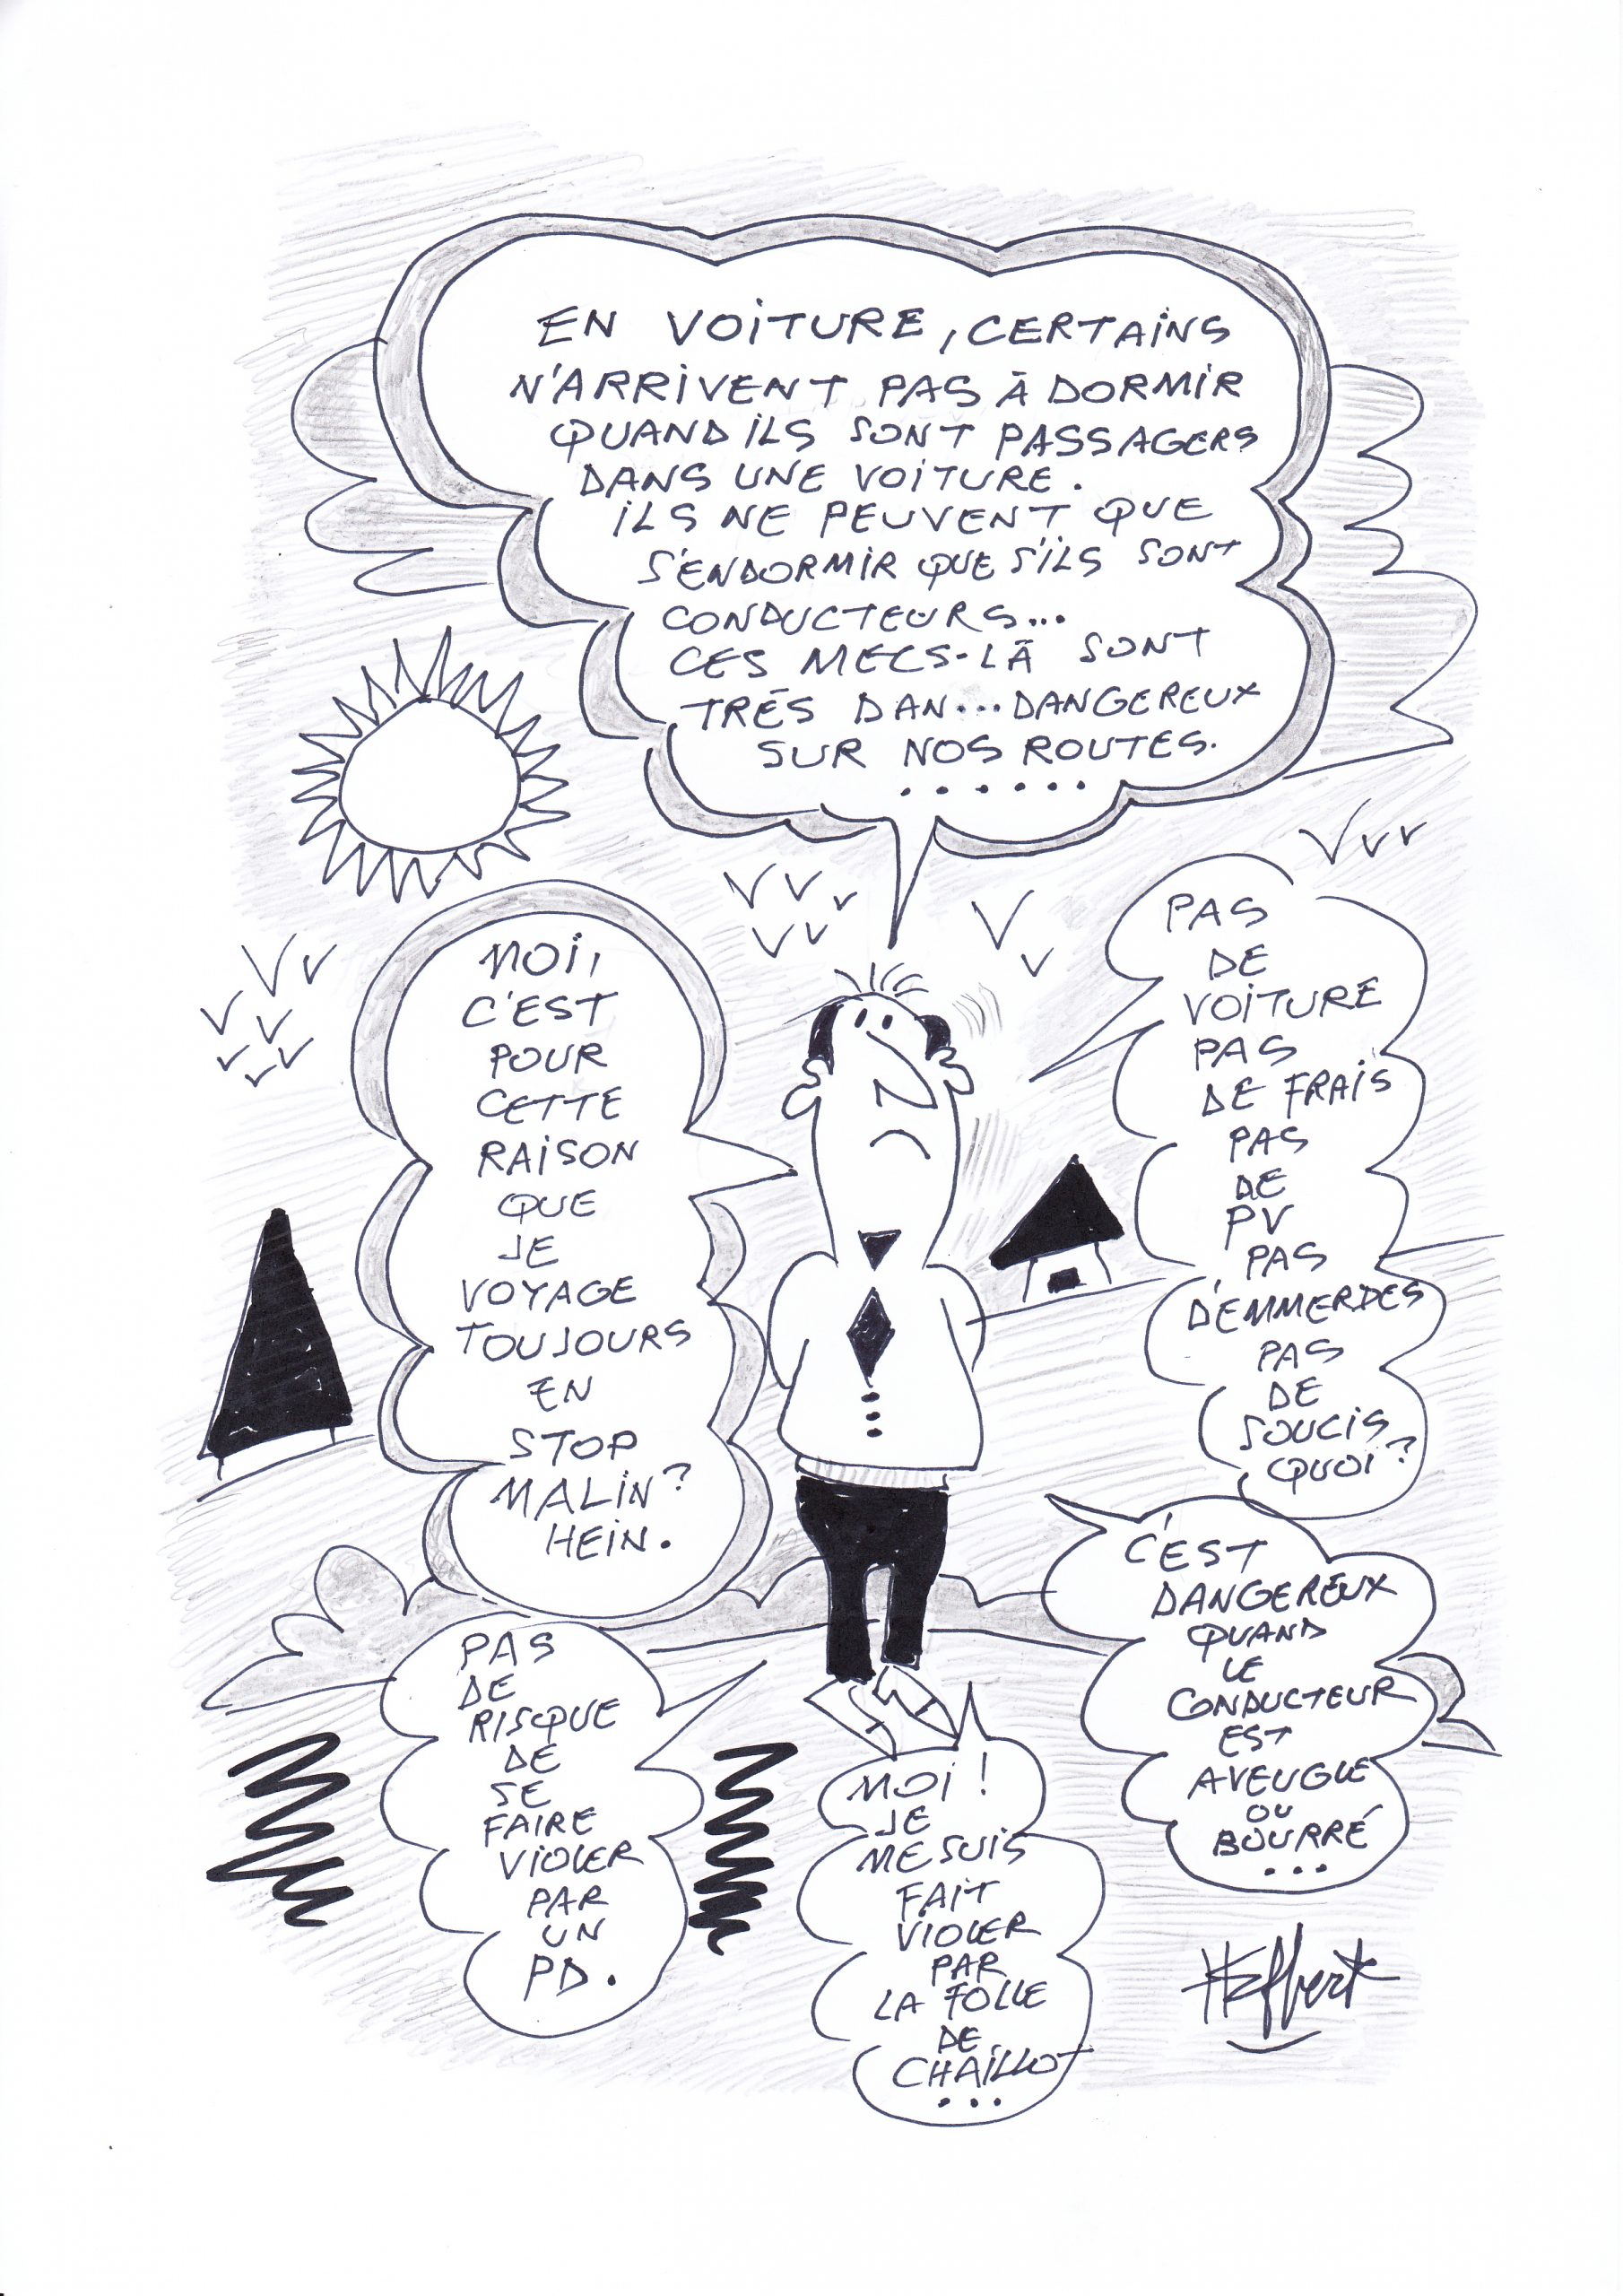 EN VOITURE, CERTAINS
N'ARRIVENT PAS À DORMIR
QUAND ILS SONT PASSAGERS
DANS UNE VOITURE.
ILS NE PEUVENT QUE
S'ENDORMIR QUE S'ILS SONT
CONDUCTEURS...
CES MECS-LÀ SONT
TRÉS DAN...DANGEREUX
SUR NOS ROUTES.
......
MOI,
C'EST
POUR
CETTE
RAISON
QUE
JE
VOYAGE
TOUJOURS
EN
STOP
MALIN?
HEIN.
PAS
DE
VOITURE
PAS
DE FRAIS
PAS
DE
PV
PAS
D'EMMERDES
PAS
DE
SOUCIS
QUOI?
C'EST
DANGEREUX
QUAND
LE
CONDUCTEUR
EST
AVEUGLE
OU
BOURRÉ
...
PAS
DE
RISQUE
DE
SE
FAIRE
VIOLER
PAR
UN
PD.
MOI!
JE
ME SUIS
FAIT
VIOLER
PAR
LA FOLLE
DE
CHAILLOT
...